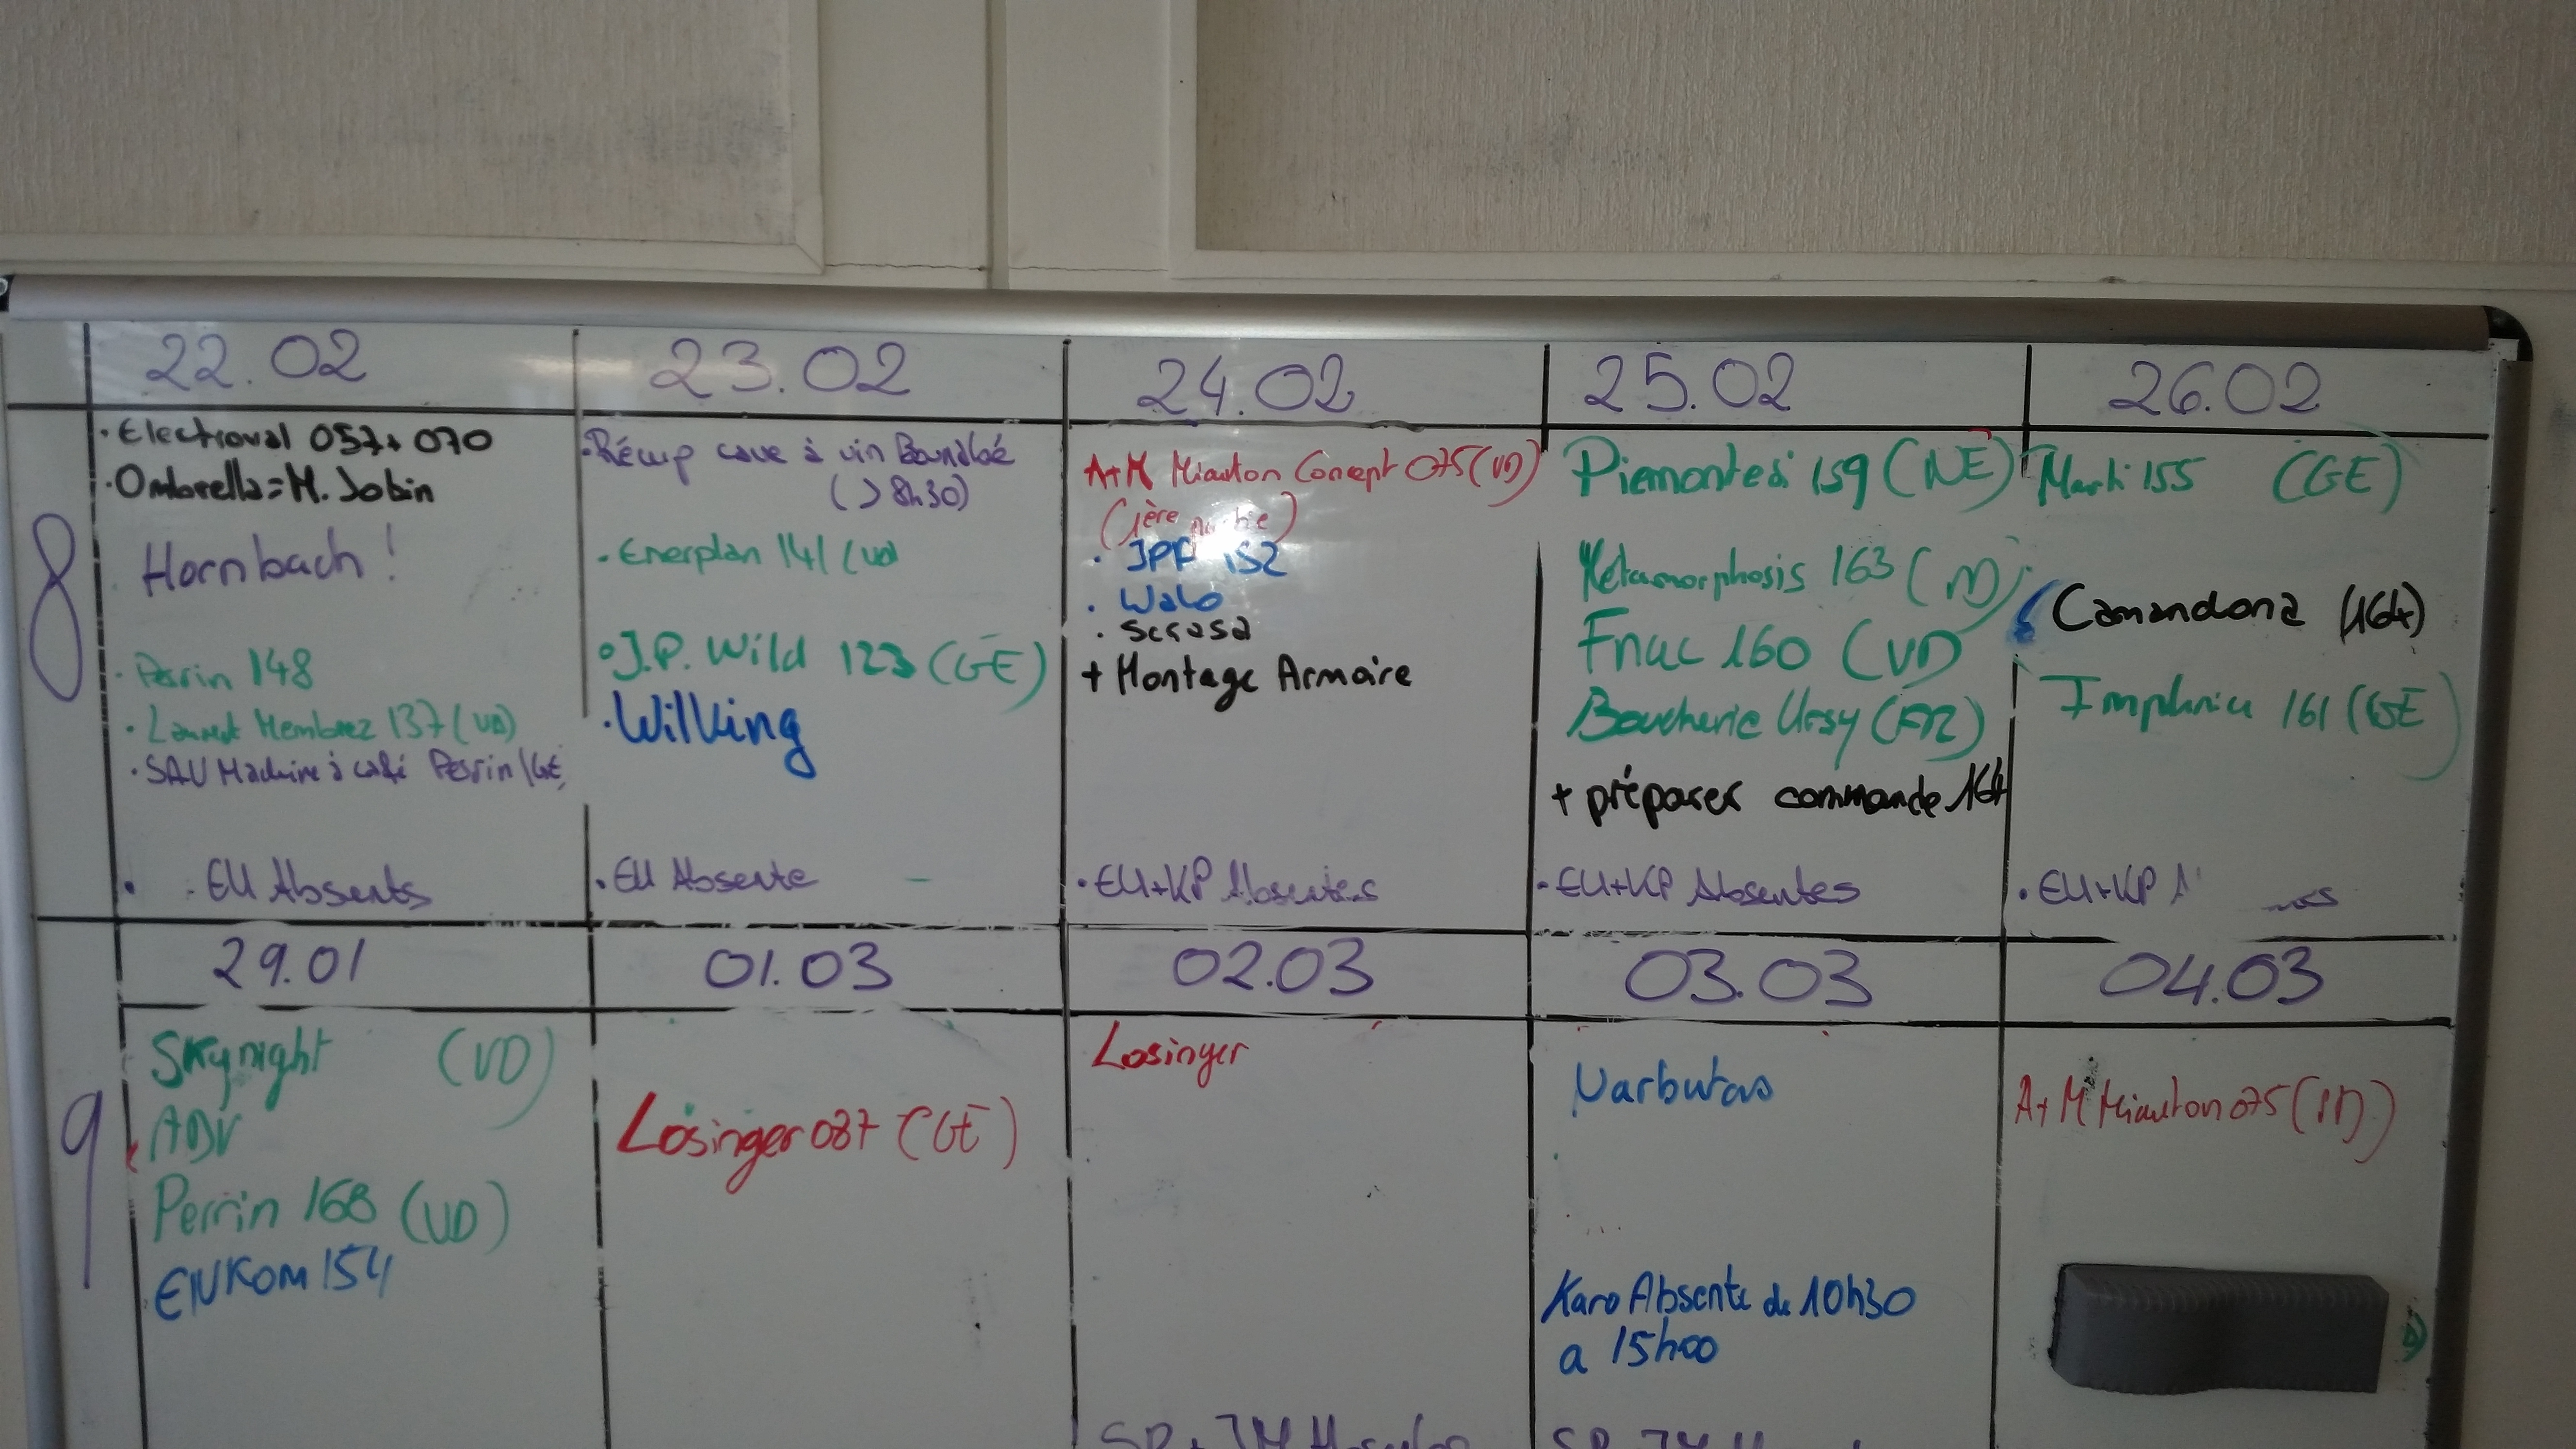 22.02
23.02
24.02
25.02
26.02
8
· Electroval 057+ 070
· Ombrella = M. Jobin
Hornbach !
· Perrin 148
· Laurent Membrez 137 (VD)
· SAV Machine à café Perrin (GE)
· EU Absents
· Récup cave à vin
(> 8h30)
· Enerplan 141 (VD
° J.P. Wild 123 (GE)
· Wilking
· EU Absente
A+M Miauton Concept 075 (VD)
(1ère partie)
· JPF 152
· Walo
· Scrasa
+ Montage Armoire
· EU+KP Absentes
Piemontesi 159 (NE)
Metamorphosis 163 (VD)
Fnac 160 (VD)
Boucherie Ursy (FR)
+ préparer commande 164
- EU+KP Absentes
Marti 155 (GE)
Camandona (164)
161 (GE)
· EU+KP
29.01
01.03
02.03
03.03
04.03
9
Skynight (VD)
ADV
Perrin 168 (VD)
ENKOM 154
Losinger 087 (GE)
Losinger
Narbutas
Karo Absente de 10h30
a 15h00
A+M Miauton 075 (VD)